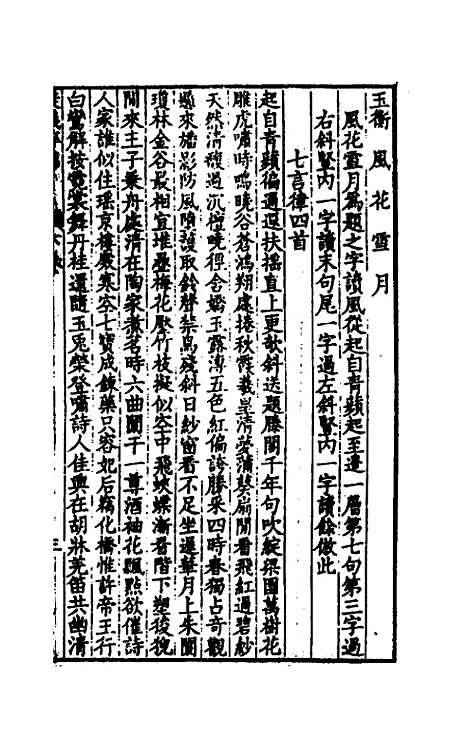 玉衡風花雪月
風花雪月爲題之字讀風從起自青蘋起至邊一層第七句第三字過
右斜豎內一字讀末句尾一字過左斜豎內一字讀餘倣此
七言律四首
起自青蘋徧邇遐扶搖直上更欹斜送題滕閣千年句吹綻梁園萬樹花
雕虎嘯時鳴曉谷蒼鴻翔處捲秋霞羲皇清夢蒲葵扇閒看飛紅過碧紗
天然清馥過沉檀曉徑含嬌玉露漙五色紅偏誇勝采四時春獨占奇觀
懸來旛影防風隕護取鈴聲禁鳥殘斜日紗窗看不足坐邀華月上朱闌
瓊林金谷最相宜堆疊梅花壓竹枝擬似空中飛蛺蝶漸看階下塑狻猊
閒來王子乗舟處清在陶家煮茗時六曲闌干一尊酒袖花飄點欲催詩
人家誰似住瑤京樓廠寒空七寶成鍊藥只容妃后竊化橋惟許帝王行
白鸞解按霓裳舞丹桂還隨玉兔榮登嘯詩人佳興在胡牀羌笛共幽清